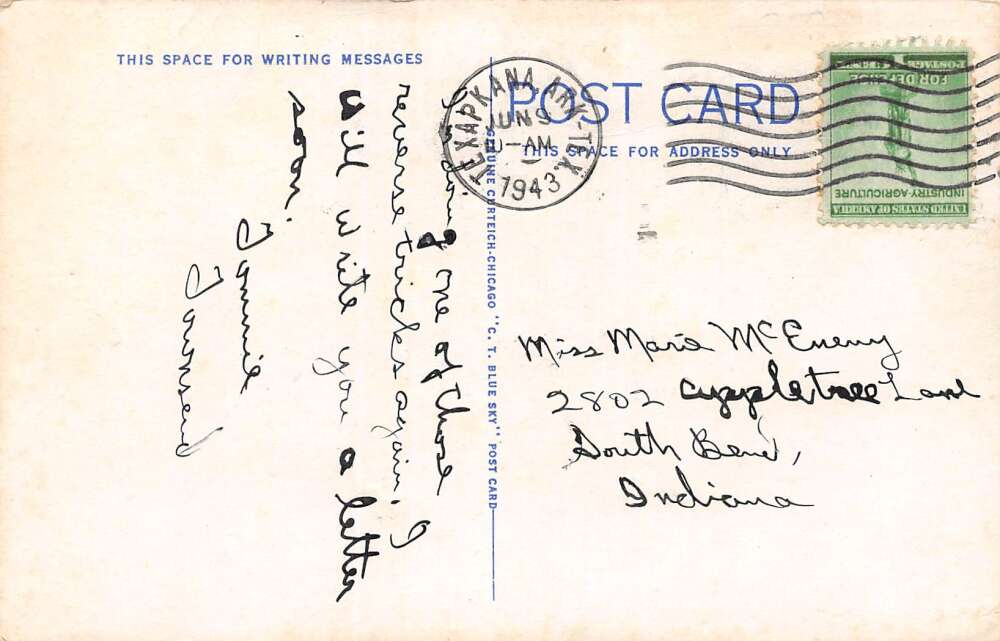 THIS SPACE FOR WRITING MESSAGES
POST CARD
THIS SPACE FOR ADDRESS ONLY
TEXARKANA, ARK.-TEX.
JUN 9
AM
1943
POSTAGE
FOR DEFENSE
INDUSTRY-AGRICULTURE
UNITED STATES OF AMERICA
GENUINE CURTEICH-CHICAGO "C. T. BLUE SKY" POST CARD
one of those
reverse tricks again. I
will write you a letter
soon.
Tommie
Townsend
Miss Marie McEneny
2802 Appletree Lane
South Bend,
Indiana